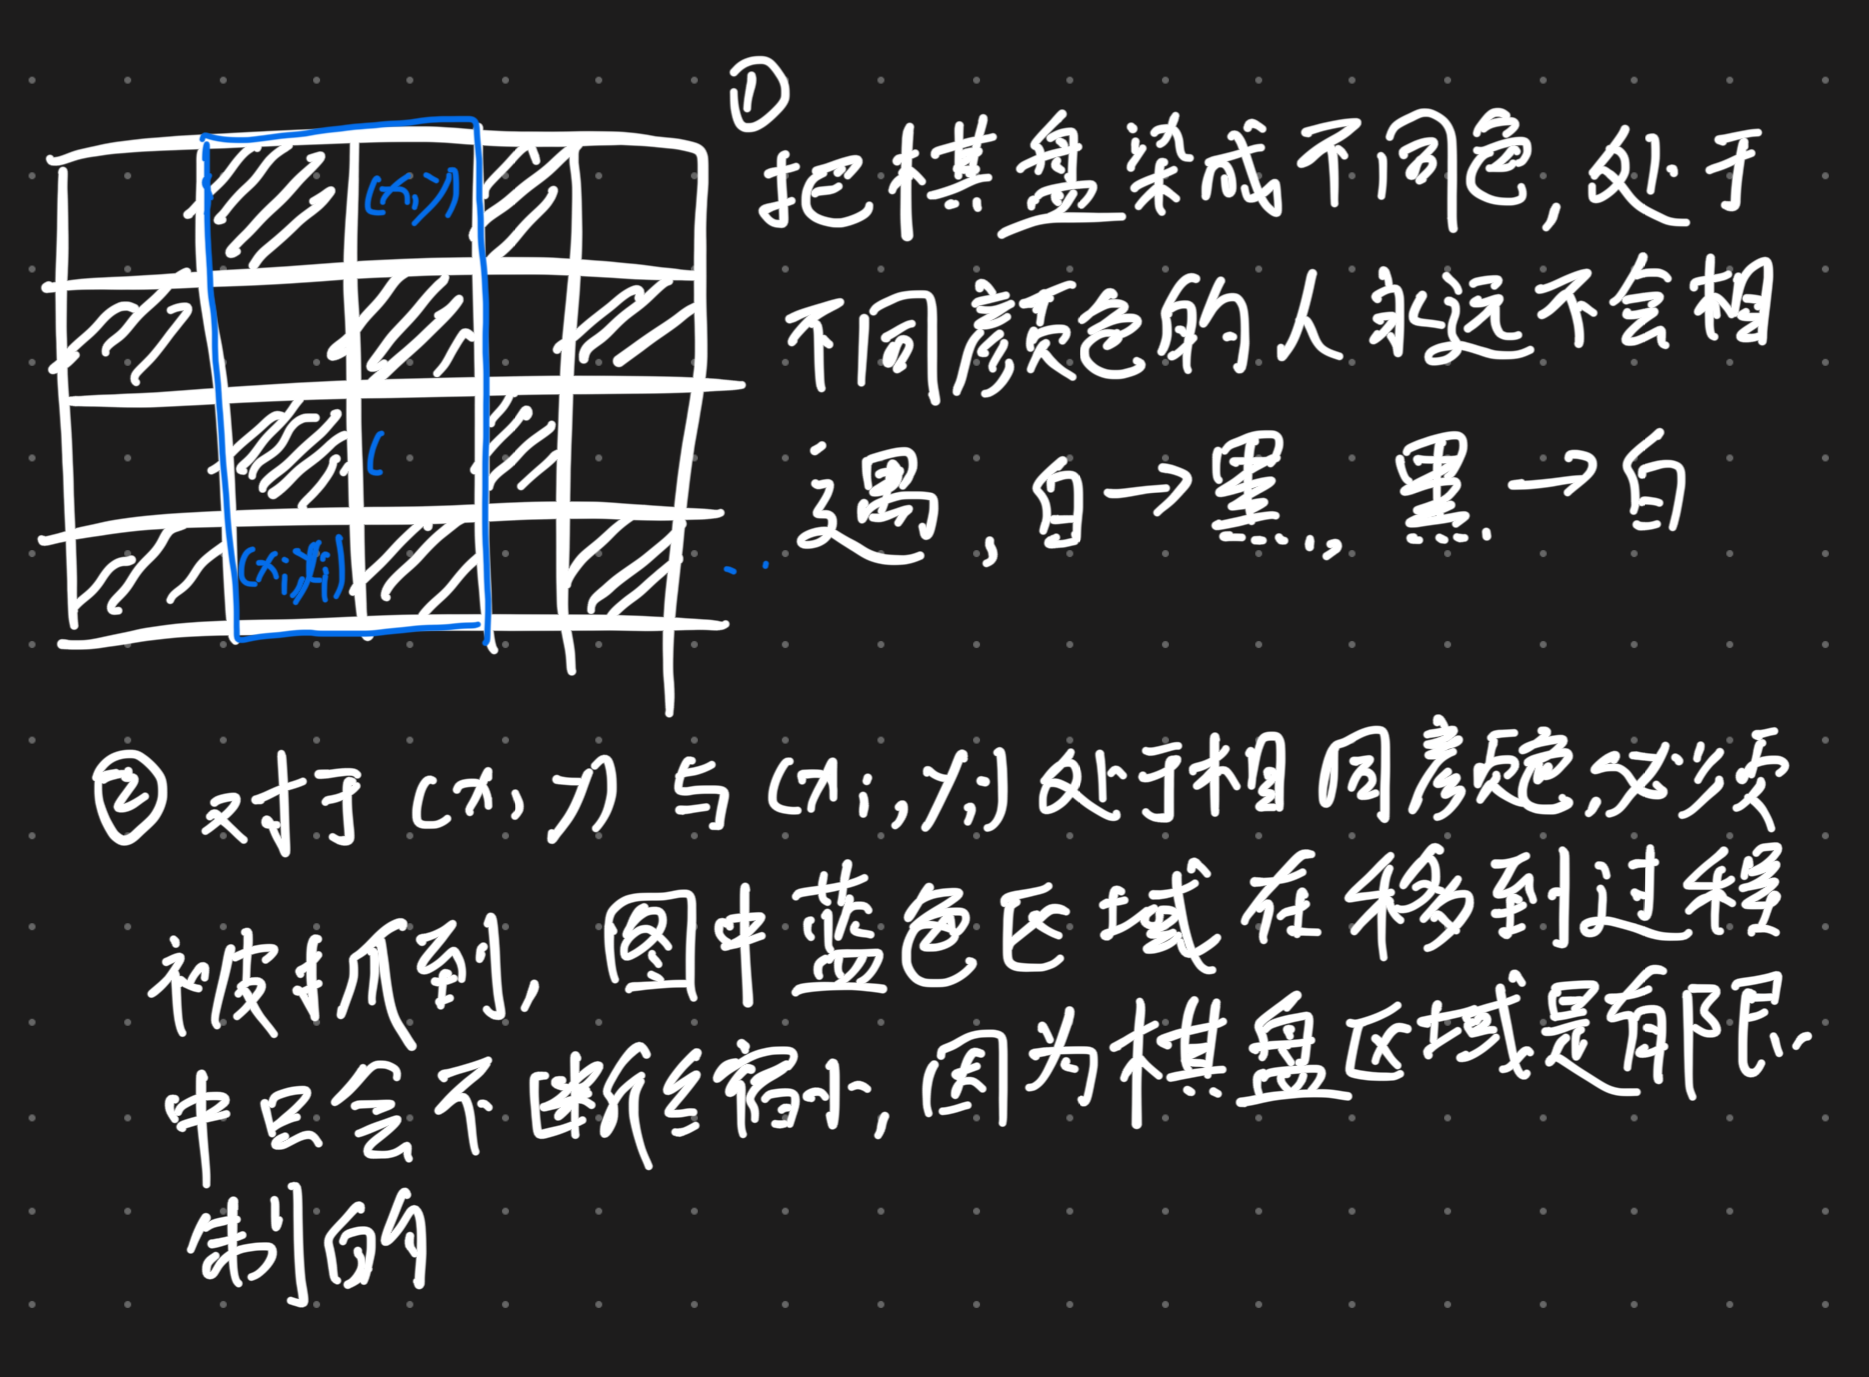 ①
把棋盘染成不同色,处于
不同颜色的人永远不会相
遇,白→黑,黑→白
(x,y)
(
(xi,yi)
② 对于(x,y)与(xi,yi)处于相同颜色,必须
被抓到,图中蓝色区域在移到过程
中只会不断缩小,因为棋盘区域是有限
制的